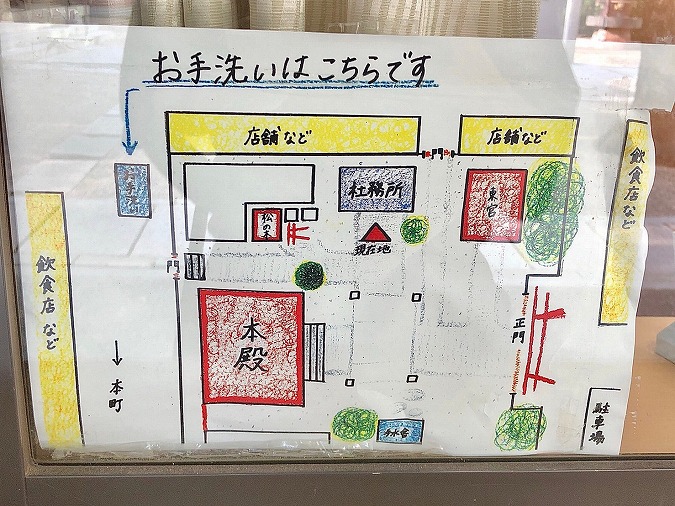 お手洗いはこちらです
店舗など
店舗など
飲食店など
お手洗い
社務所
東宮
松の木
現在地
門
門
飲食店など
本殿
正門
本町
手水舎
駐車場